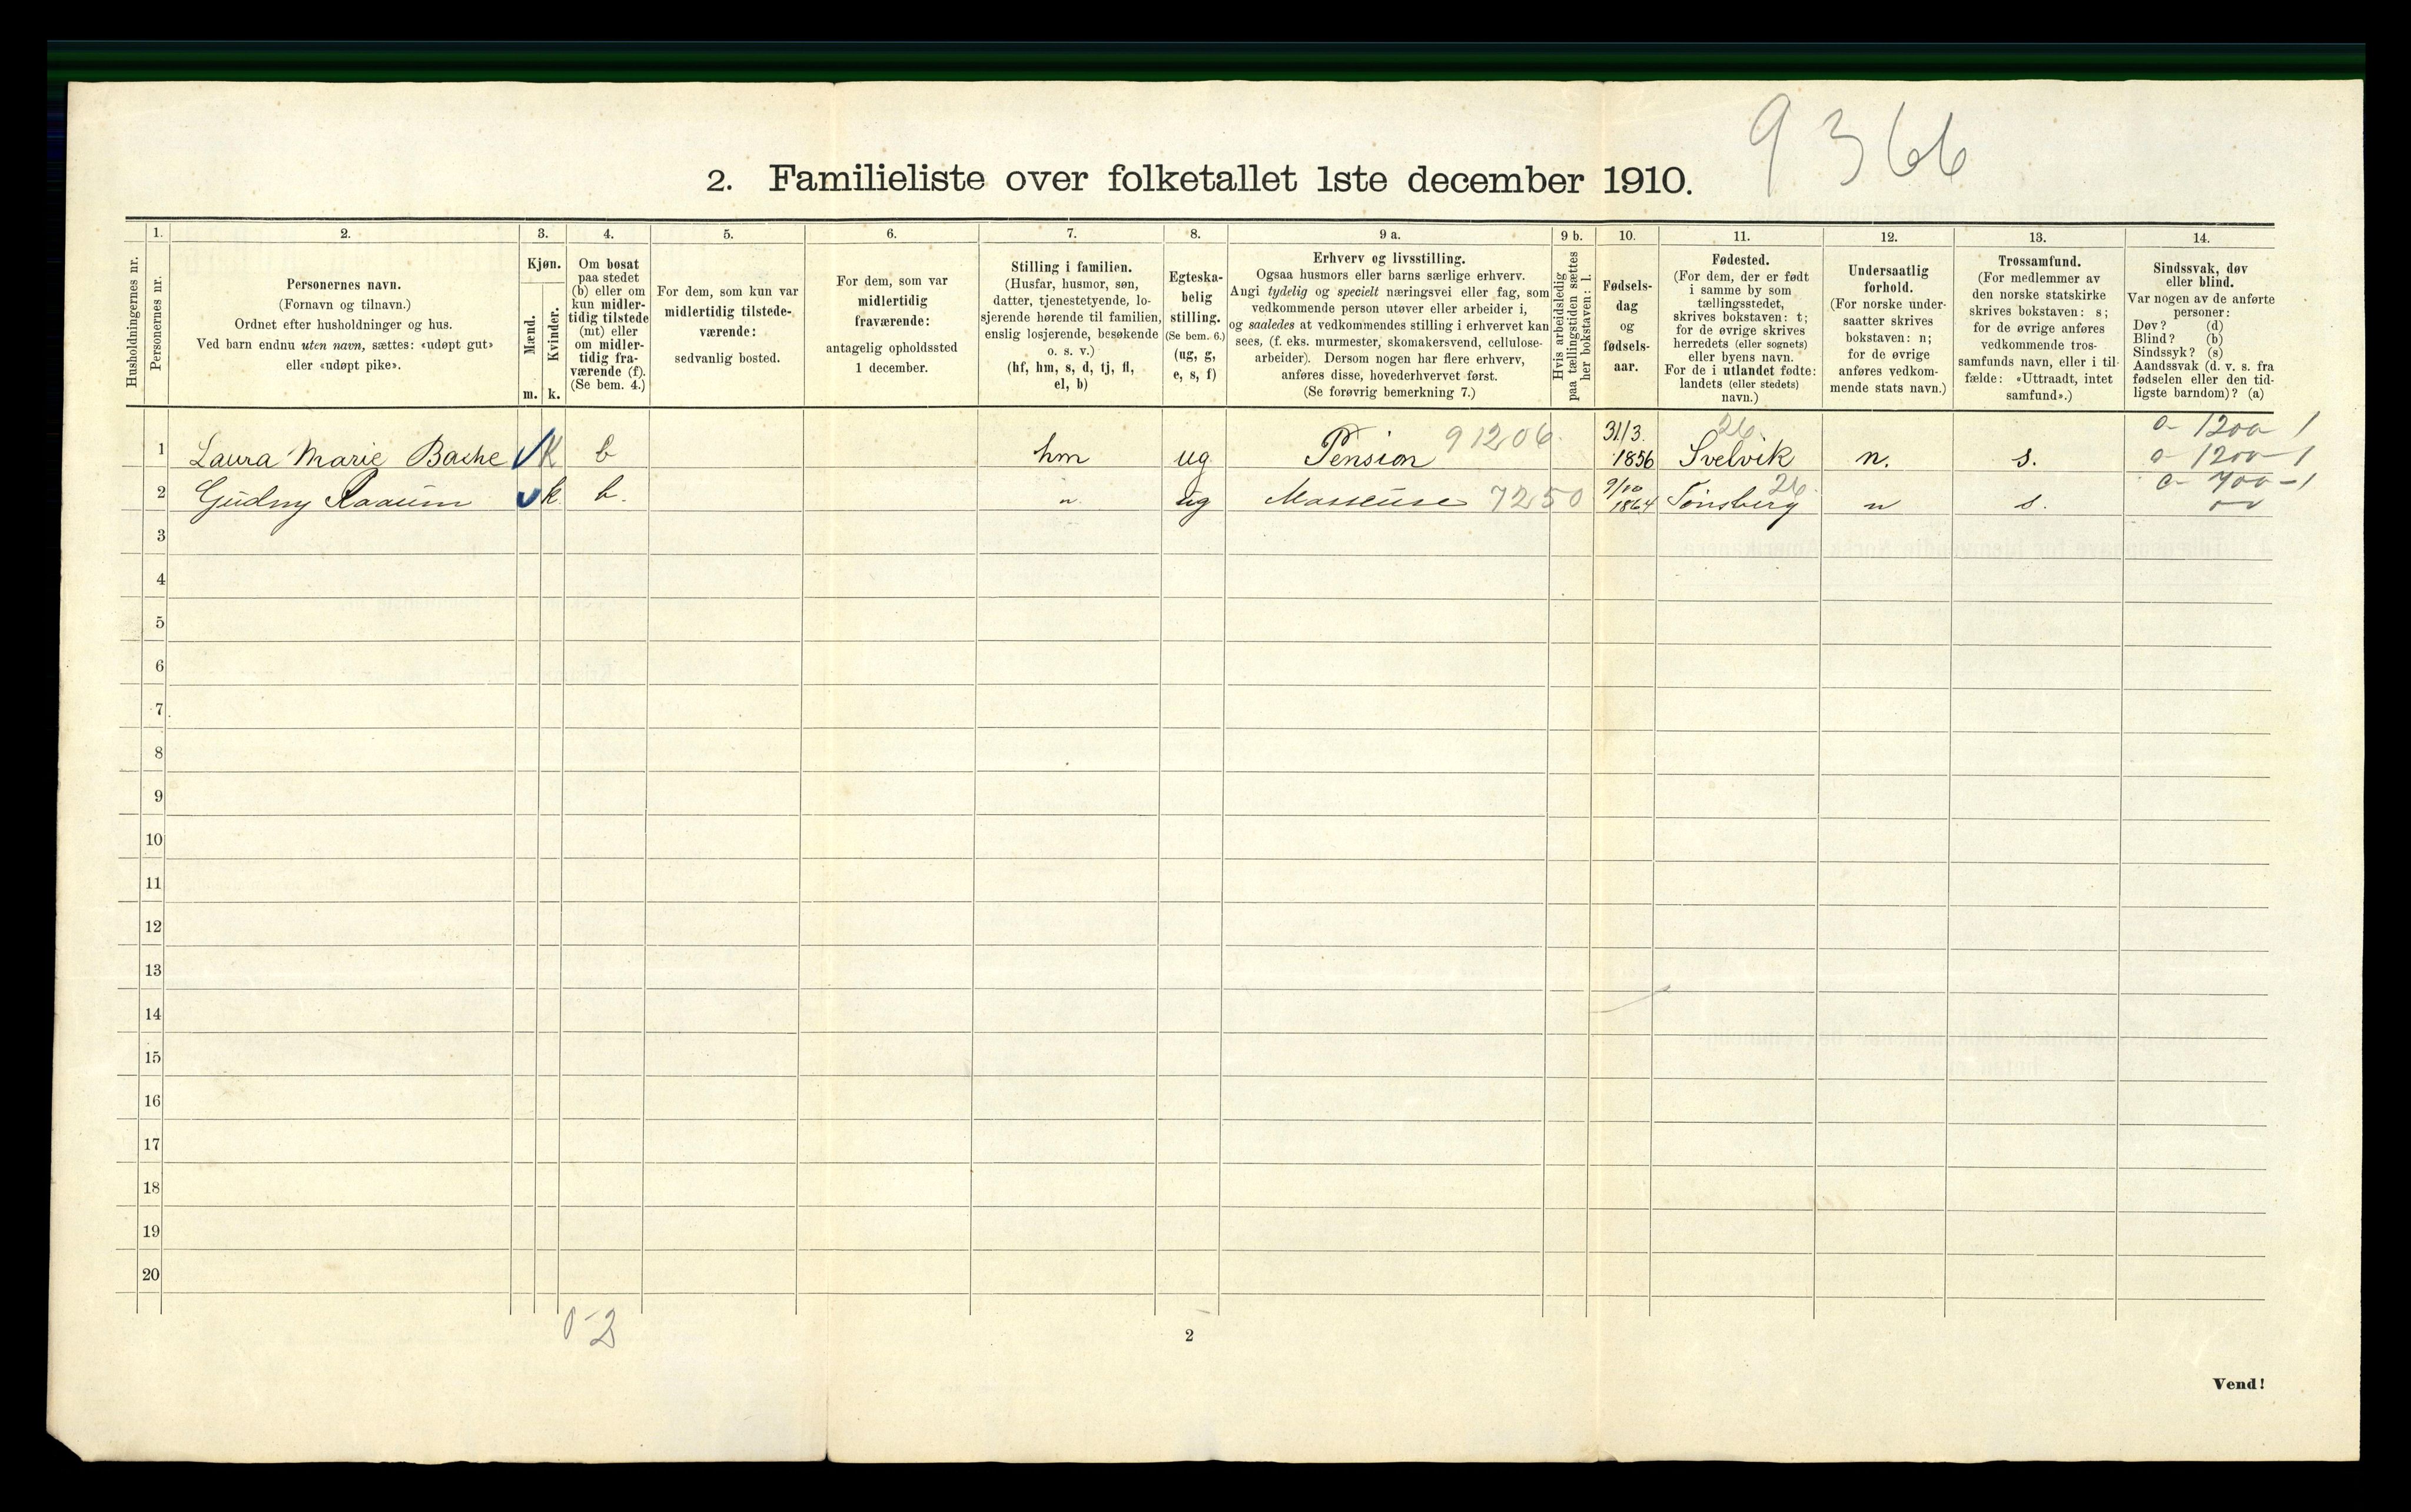 9366
2. Familieliste over folketallet 1ste december 1910.
Husholdningernes nr.
1. Personernes nr.
2. Personernes navn.
(Fornavn og tilnavn.)
Ordnet efter husholdninger og hus.
Ved barn endnu uten navn, sættes: «udøpt gut»
eller «udøpt pike».
3. Kjøn.
Mænd. m.
Kvinder. k.
4. Om bosat
paa stedet
(b) eller om
kun midler-
tidig tilstede
(mt) eller
om midler-
tidig fra-
værende (f).
(Se bem. 4.)
5. For dem, som kun var
midlertidig tilstede-
værende:
sedvanlig bosted.
6. For dem, som var
midlertidig
fraværende:
antagelig opholdssted
1 december.
7. Stilling i familien.
(Husfar, husmor, søn,
datter, tjenestetyende, lo-
sjerende hørende til familien,
enslig losjerende, besøkende
o. s. v.)
(hf, hm, s, d, tj, fl,
el, b)
8. Egteska-
belig
stilling.
(Se bem. 6.)
(ug, g,
e, s, f)
9 a. Erhverv og livsstilling.
Ogsaa husmors eller barns særlige erhverv.
Angi tydelig og specielt næringsvei eller fag, som
vedkommende person utøver eller arbeider i,
og saaledes at vedkommendes stilling i erhvervet kan
sees, (f. eks. murmester, skomakersvend, cellulose-
arbeider). Dersom nogen har flere erhverv,
anføres disse, hovederhvervet først.
(Se forøvrig bemerkning 7.)
9 b. Hvis arbeidsledig
paa tællingstiden sættes
her bokstaven: l.
10. Fødsels-
dag
og
fødsels-
aar.
11. Fødested.
(For dem, der er født
i samme by som
tællingsstedet,
skrives bokstaven: t;
for de øvrige skrives
herredets (eller sognets)
eller byens navn.
For de i utlandet fødte:
landets (eller stedets)
navn.)
12. Undersaatlig
forhold.
(For norske under-
saatter skrives
bokstaven: n;
for de øvrige
anføres vedkom-
mende stats navn.)
13. Trossamfund.
(For medlemmer av
den norske statskirke
skrives bokstaven: s;
for de øvrige anføres
vedkommende tros-
samfunds navn, eller i til-
fælde: «Uttraadt, intet
samfund».)
14. Sindssvak, døv
eller blind.
Var nogen av de anførte
personer:
Døv? (d)
Blind? (b)
Sindssyk? (s)
Aandssvak (d. v. s. fra
fødselen eller den tid-
ligste barndom)? (a)
1 Laura Marie Bache k b hm ug Pension 91206 31/3. 1856 26. Svelvik n. s. 0- 1200 1
0- 1200-1
2 Gudny Raaum k b. " ug Masseuse 7250 9/10 1864 Tønsberg 26. n s. 0- 400-1
3
4
5
6
7
8
9
10
11
12
13
14
15
16
17
18
19
20
0-2
2
Vend!